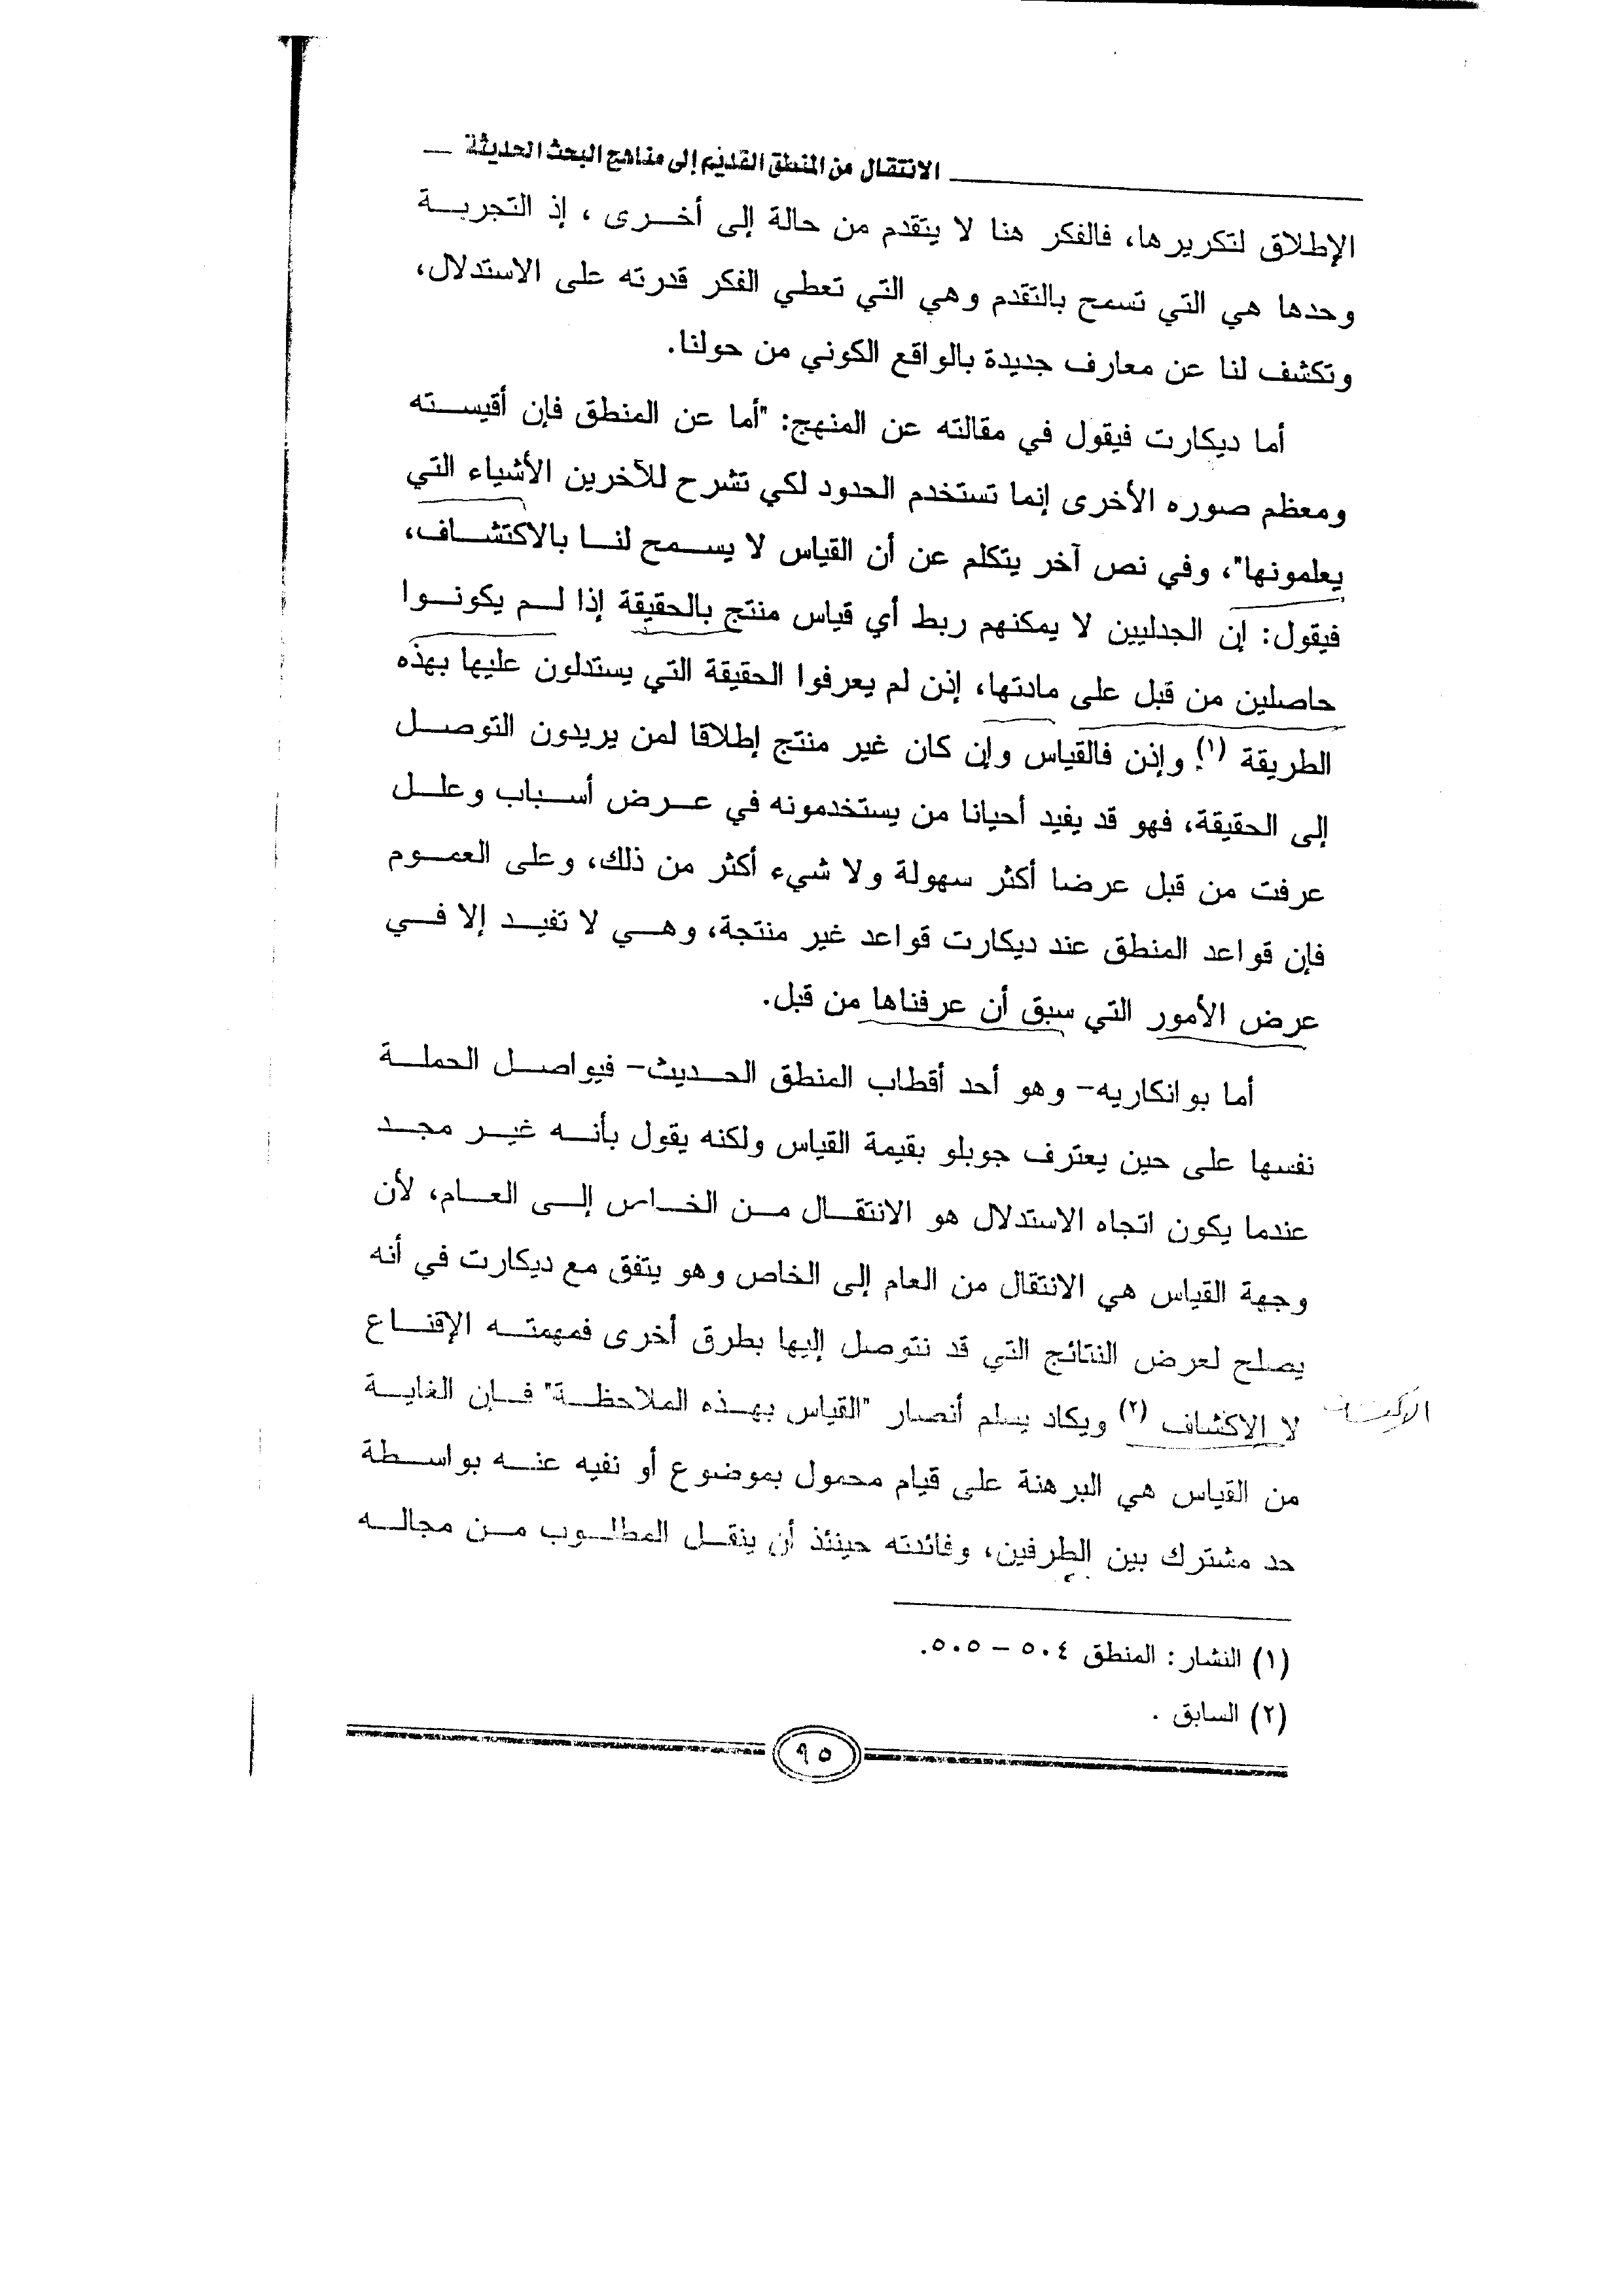 الانتقال من المنطق القديم إلى مناهج البحث الحديثة
الإطلاق لتكريرها، فالفكر هنا لا يتقدم من حالة إلى أخرى ، إذ التجربة
وحدها هي التي تسمح بالتقدم وهي التي تعطي الفكر قدرته على الاستدلال،
وتكشف لنا عن معارف جديدة بالواقع الكوني من حولنا.
أما ديكارت فيقول في مقالته عن المنهج: "أما عن المنطق فإن أقيسته
ومعظم صوره الأخرى إنما تستخدم الحدود لكي تشرح للآخرين الأشياء التي
يعلمونها"، وفي نص آخر يتكلم عن أن القياس لا يسمح لنا بالاكتشاف،
فيقول: إن الجدليين لا يمكنهم ربط أي قياس منتج بالحقيقة إذا لم يكونوا
حاصلين من قبل على مادتها، إذن لم يعرفوا الحقيقة التي يستدلون عليها بهذه
الطريقة (١). وإذن فالقياس وإن كان غير منتج إطلاقا لمن يريدون التوصل
إلى الحقيقة، فهو قد يفيد أحيانا من يستخدمونه في عرض أسباب وعلل
عرفت من قبل عرضا أكثر سهولة ولا شيء أكثر من ذلك، وعلى العموم
فإن قواعد المنطق عند ديكارت قواعد غير منتجة، وهي لا تفيد إلا في
عرض الأمور التي سبق أن عرفناها من قبل.
أما بوانكاريه- وهو أحد أقطاب المنطق الحديث- فيواصل الحملة
نفسها على حين يعترف جوبلو بقيمة القياس ولكنه يقول بأنه غير مجد
عندما يكون اتجاه الاستدلال هو الانتقال من الخاص إلى العام، لأن
وجهة القياس هي الانتقال من العام إلى الخاص وهو يتفق مع ديكارت في أنه
يصلح لعرض النتائج التي قد نتوصل إليها بطرق أخرى فمهمته الإقناع
لا الإكشاف (٢) ويكاد يسلم أنصار "القياس بهذه الملاحظة" فإن الغاية
من القياس هي البرهنة على قيام محمول بموضوع أو نفيه عنه بواسطة
حد مشترك بين الطرفين، وفائدته حينئذ أن ينقل المطلوب من مجاله
(١) النشار: المنطق ٥٠٤ – ٥٠٥.
(٢) السابق .
٩٥